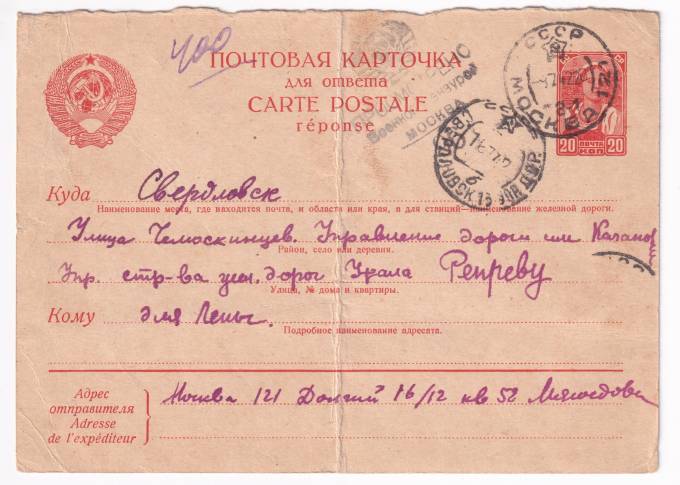 400
ПОЧТОВАЯ КАРТОЧКА
для ответа
CARTE POSTALE
réponse
ПРОСМОТРЕНО
Военной Цензурой
МОСКВА
СССР
МОСКВА 121
ПОЧТА
20 КОП 20
СВЕРДЛОВСК
Куда Свердловск
Наименование места, где находится почта, и области или края, а для станций—наименование железной дороги.
Улица Челюскинцев. Управление дороги им Кагано
Район, село или деревня.
Упр. стр-ва жел. дорог Урала Репреву
Улица, № дома и квартиры.
Кому для Лены.
Подробное наименование адресата.
Адрес
отправителя
Adresse
de l'expéditeur
Москва 121 Долгий 16/12 кв 52 Мясоедова